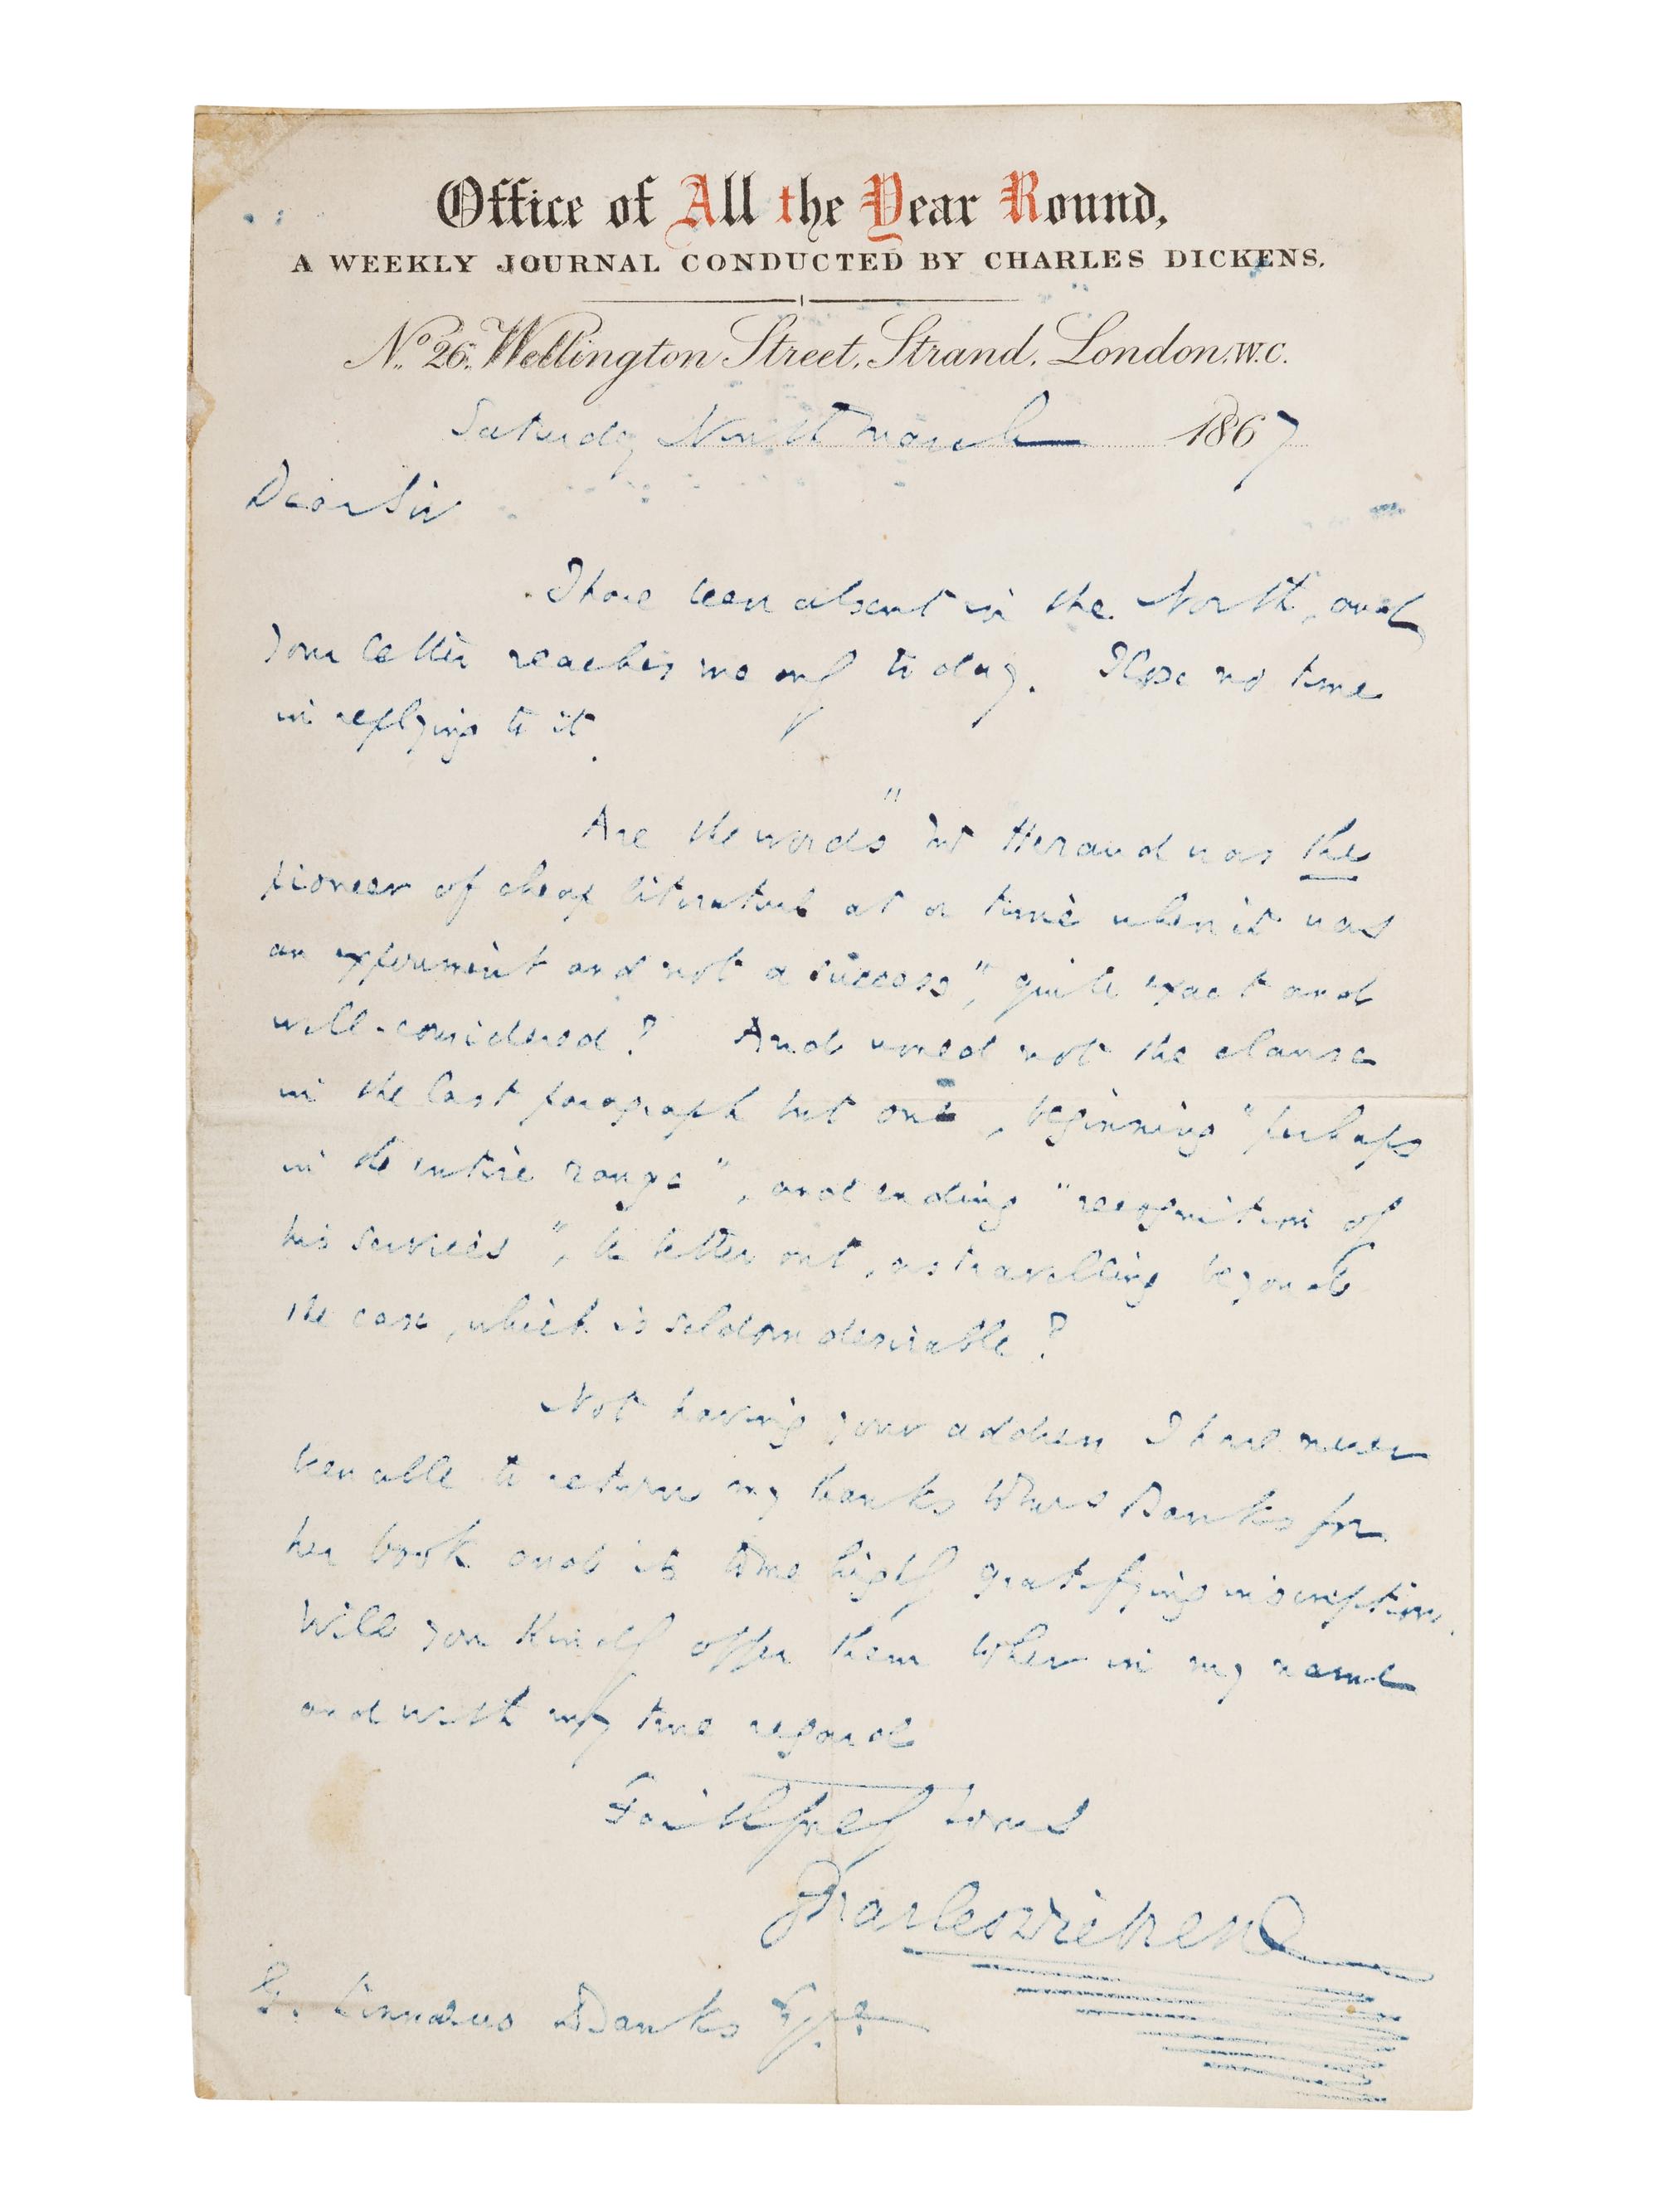 Office of All the Year Round,
A WEEKLY JOURNAL CONDUCTED BY CHARLES DICKENS.
No. 26, Wellington Street, Strand, London, W.C.
Saturday Ninth March 1867
Dear Sir
I have been absent in the North, and
your letter reaches me only to day. I lose no time
in replying to it.
Are the words "Mr Heraud was the
pioneer of cheap literature at a time when it was
an experiment and not a success", quite exact and
well-considered? And need not the clause
in the last paragraph but one, beginning "perhaps
in the entire range", and ending "recognition of
his services", be better out, as travelling beyond
the case, which is seldom desirable?
Not having your address I have never
been able to return my thanks to Mrs Banks for
her book and its to me highly gratifying inscription.
Will you kindly offer them to her in my name
and with my true regard
Faithfully Yours
Charles Dickens
G. Linnæus Banks Esqre